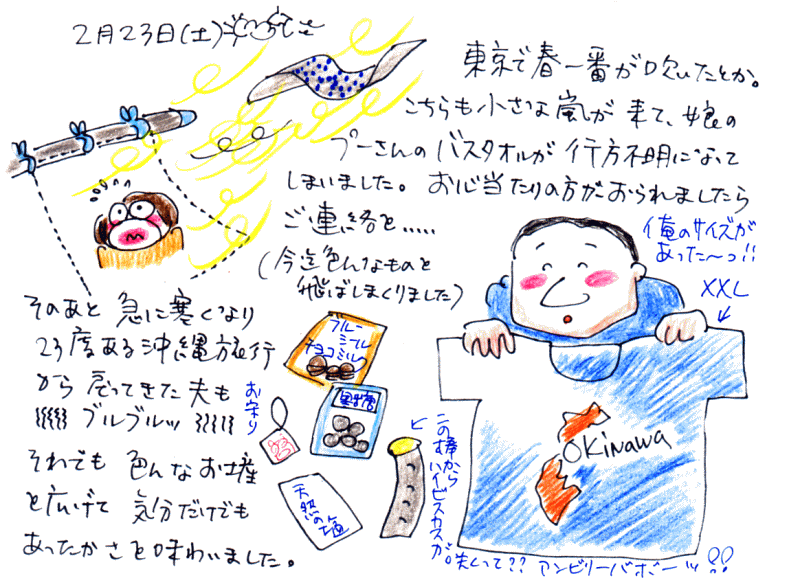 2月23日(土)
東京で春一番が吹いたとか。
こちらも小さな嵐が来て、娘の
プーさんのバスタオルが行方不明になって
しまいました。お心当たりの方がおられましたら
ご連絡を.....
(今迄色んなものを
飛ばしまくりました)
そのあと急に寒くなり
23度ある沖縄旅行
から戻ってきた夫も
ブルブルッ
それでも色んなお土産
を広げて気分だけでも
あったかさを味わいました。
俺のサイズが
あった〜っ!!
XXL
OKiNAWA
ブルー
シール
チョコミルク
黒糖
お守り
天然の塩
この棒から
ハイビスカスが
咲くって??アンビリーバボーッ!!